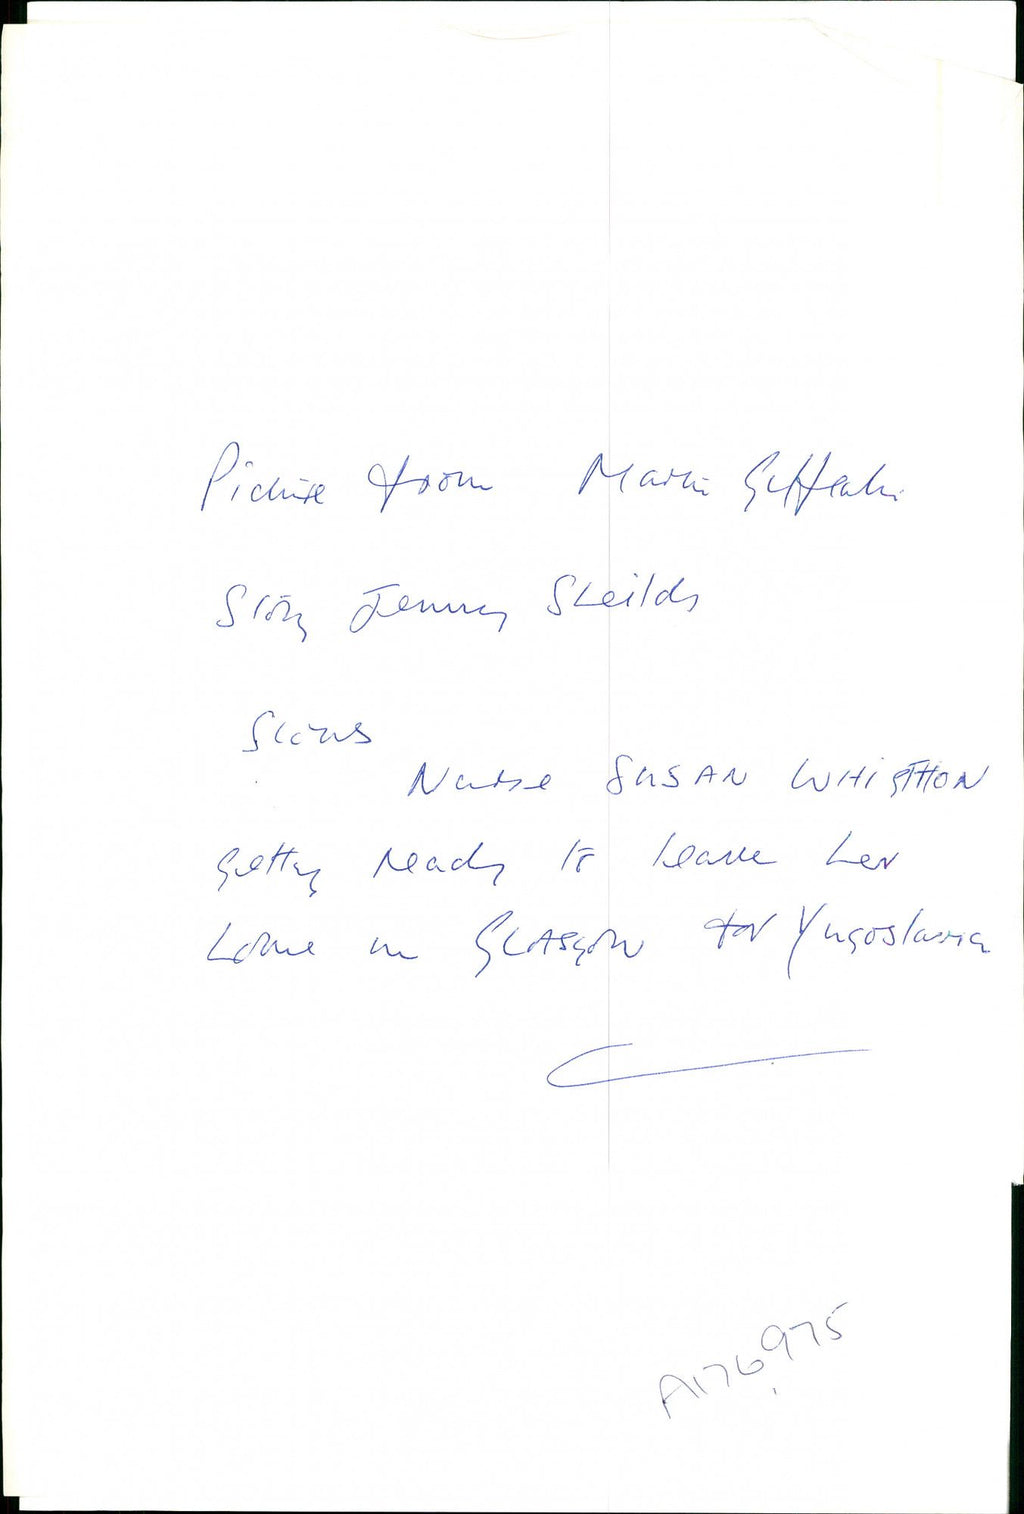 Picture from Martin
Story Jenny Sheilds
Shows
Nurse SUSAN WHIGTHON
getting ready to leave her
home in GLASGOW for Yugoslavia
A176,975